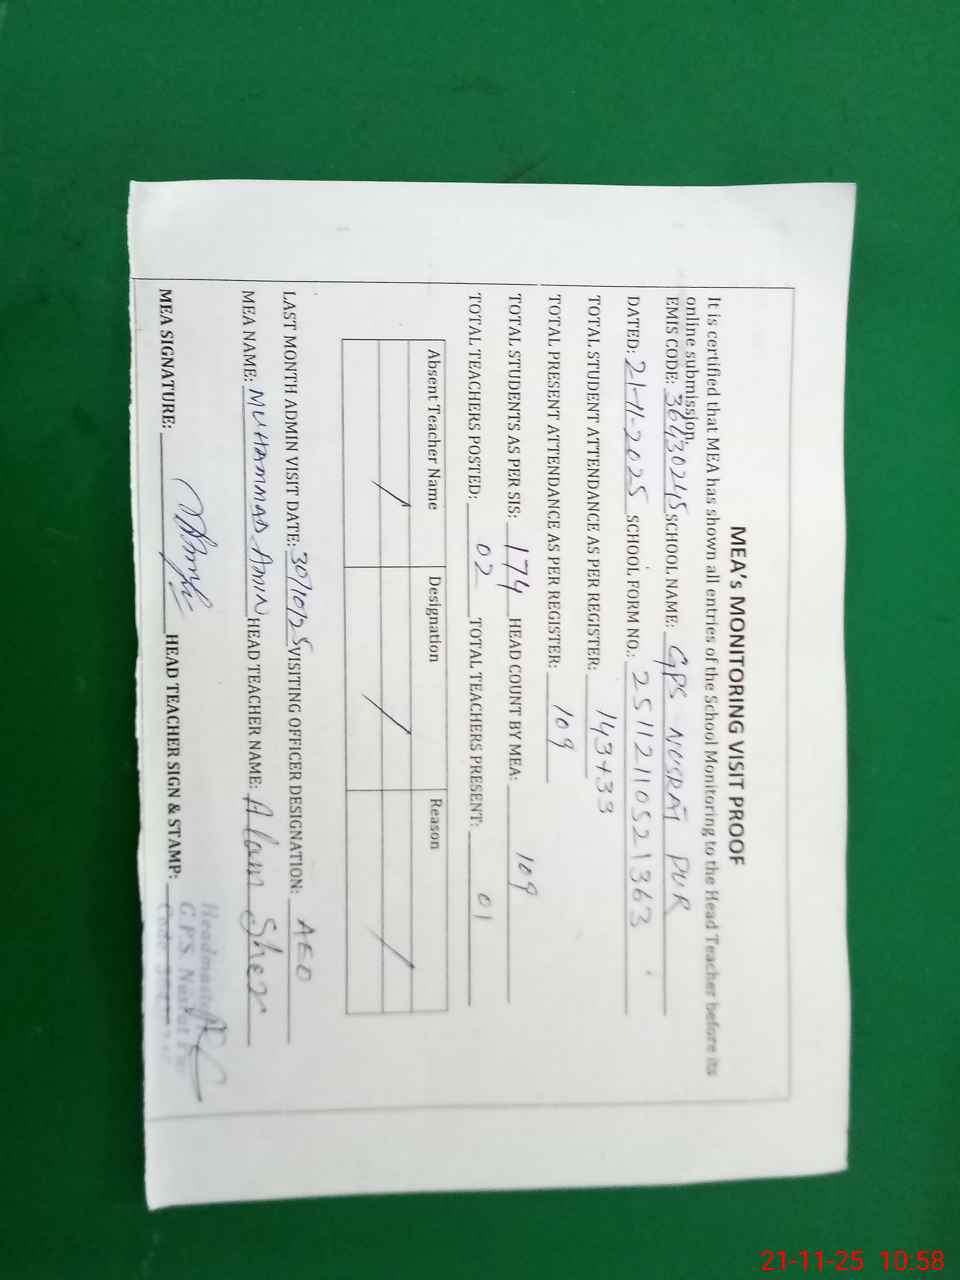 MEA's MONITORING VISIT PROOF
It is certified that MEA has shown all entries of the School Monitoring to the Head Teacher before its
online submission.
EMIS CODE: 36430245 SCHOOL NAME: GPS NUSRAT PUR
DATED: 21-11-2025 SCHOOL FORM NO.: 25112110521363
TOTAL STUDENT ATTENDANCE AS PER REGISTER: 143+33
TOTAL PRESENT ATTENDANCE AS PER REGISTER: 109
TOTAL STUDENTS AS PER SIS: 174 HEAD COUNT BY MEA: 109
TOTAL TEACHERS POSTED: 02 TOTAL TEACHERS PRESENT: 01
Absent Teacher Name Designation Reason
/ / /
LAST MONTH ADMIN VISIT DATE: 30/10/25 VISITING OFFICER DESIGNATION: AEO
MEA NAME: MUHAMMAD AMIN HEAD TEACHER NAME: Alam Sher
MEA SIGNATURE: HEAD TEACHER SIGN & STAMP:
Headmaster
G.P.S. Nusrat Pur
21-11-25 10:58